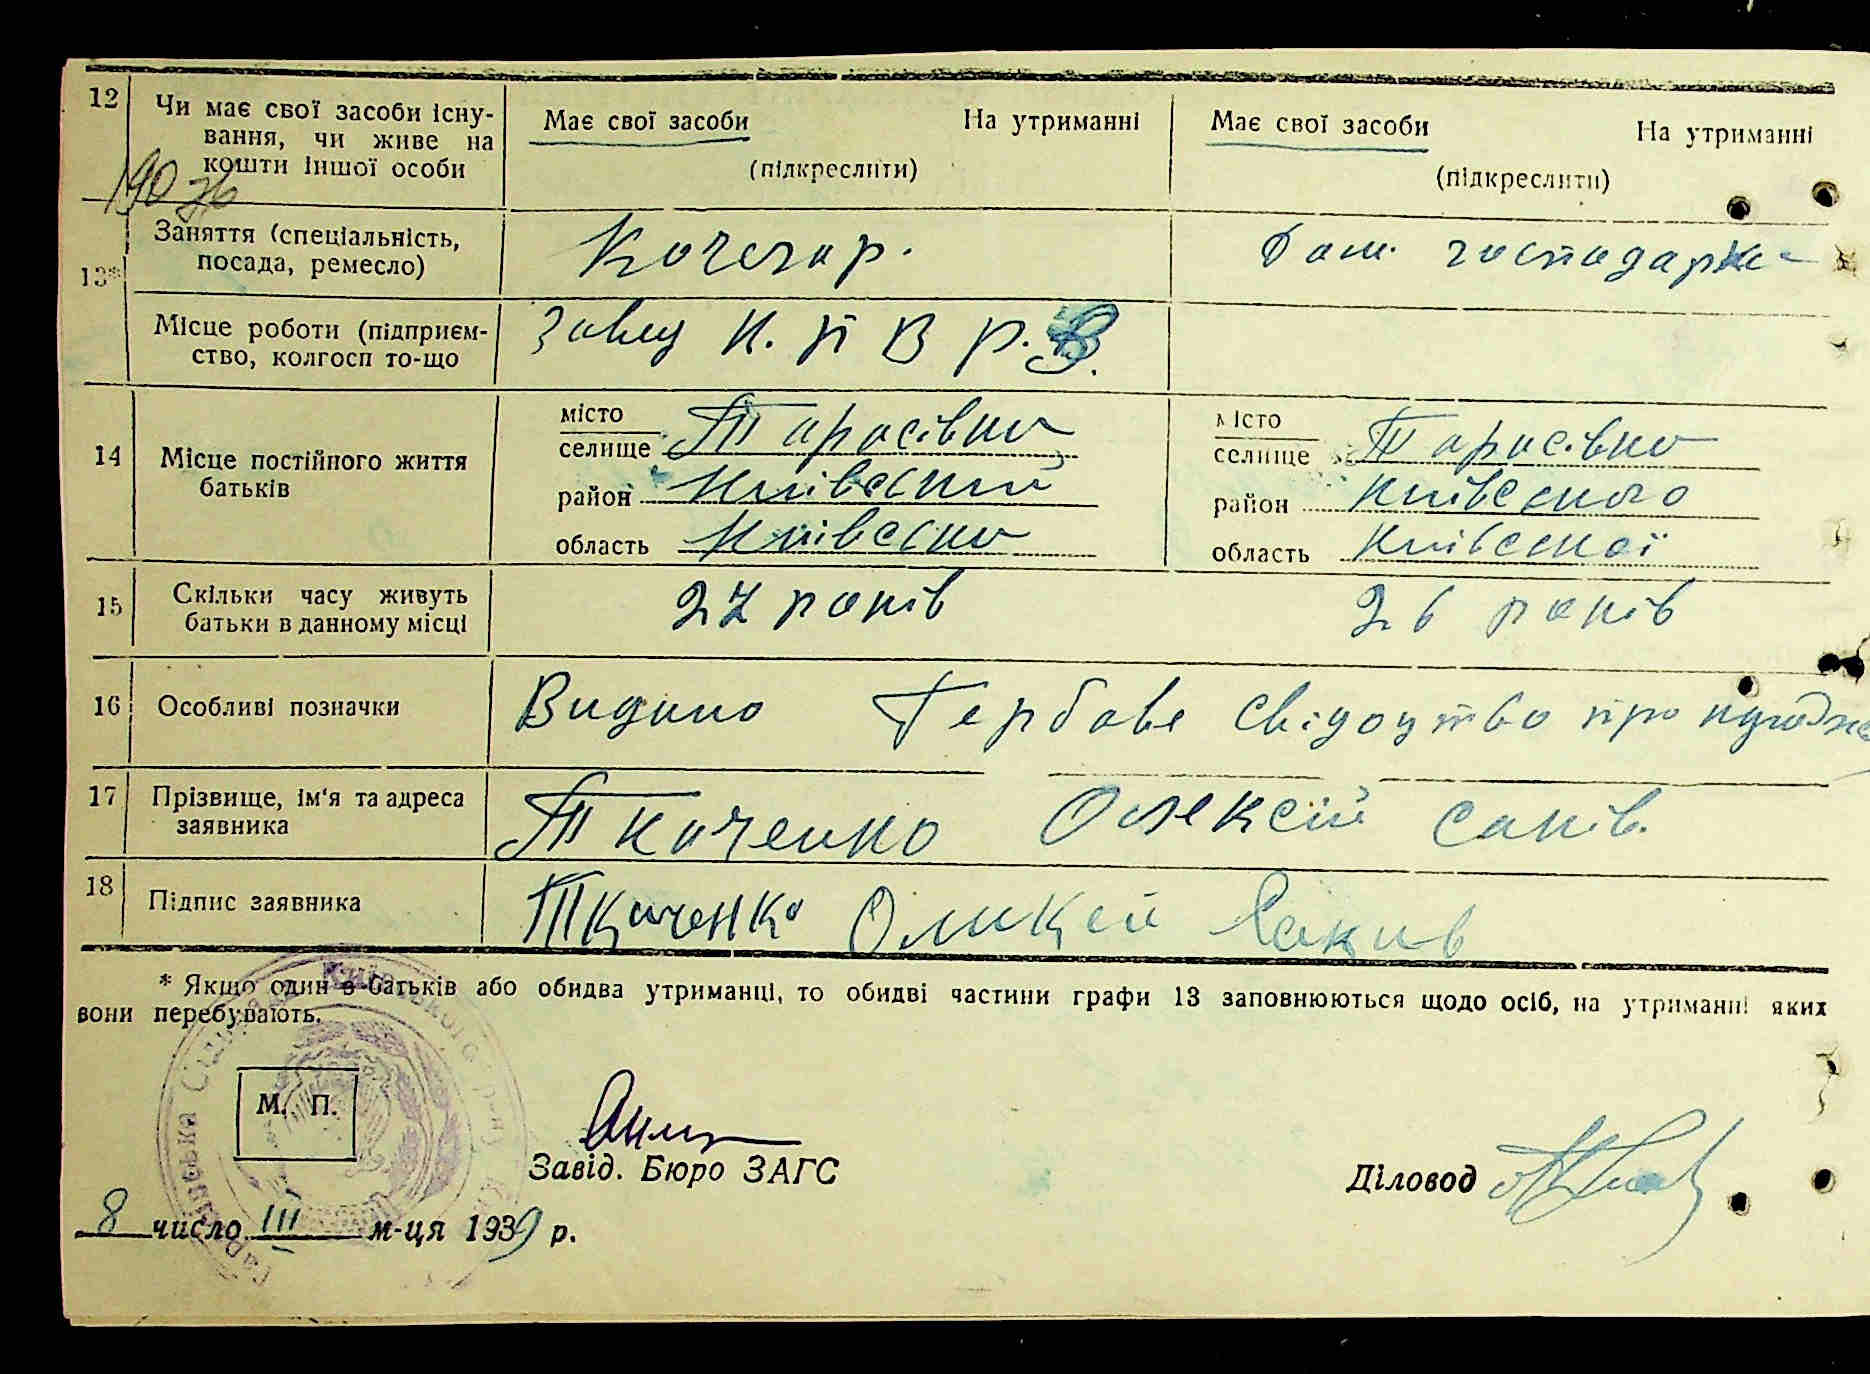 12 Чи має свої засоби існу-
вання, чи живе на
кошти іншої особи
Має свої засоби На утриманні
(підкреслити)
Має свої засоби На утриманні
(підкреслити)
13* Заняття (спеціальність,
посада, ремесло)
Кочегар.
Дом. господарка
Місце роботи (підприєм-
ство, колгосп то-що
Завод К. П В Р. З.
14 Місце постійного життя
батьків
місто
селище Тарасівка
район Київський
область Київська
місто
селище Тарасівка
район Київського
область Київської
15 Скільки часу живуть
батьки в данному місці
27 років
26 років
16 Особливі позначки
Видано Гербове свідоцтво про народже
17 Прізвище, ім'я та адреса
заявника
Ткаченко Олексій
18 Підпис заявника
Ткаченко
* Якщо один з батьків або обидва утриманці, то обидві частини графи 13 заповнюються щодо осіб, на утриманні яких
вони перебувають.
М. П.
Завід. Бюро ЗАГС
Діловод
8 число III м-ця 1939 р.